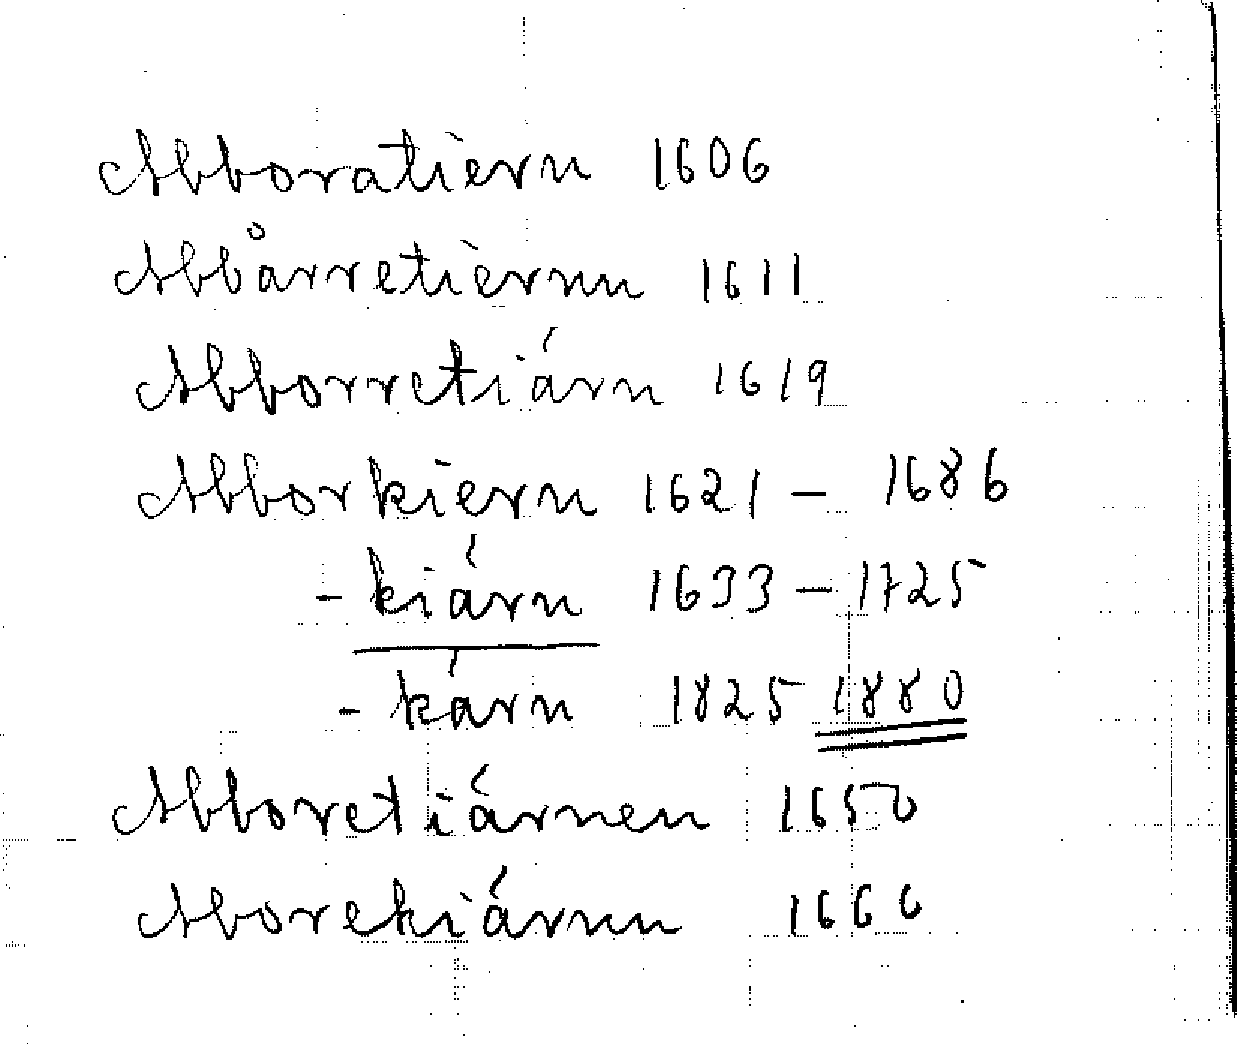 Abboratiern 1606
Abbårretiernn 1611
Abborretiárn 1619
Abborkiern 1621 – 1686
- kiárn 1633 – 1725
- kárn 1825 1880
Abboretiárnen 1650
Aborekiárnn 1666